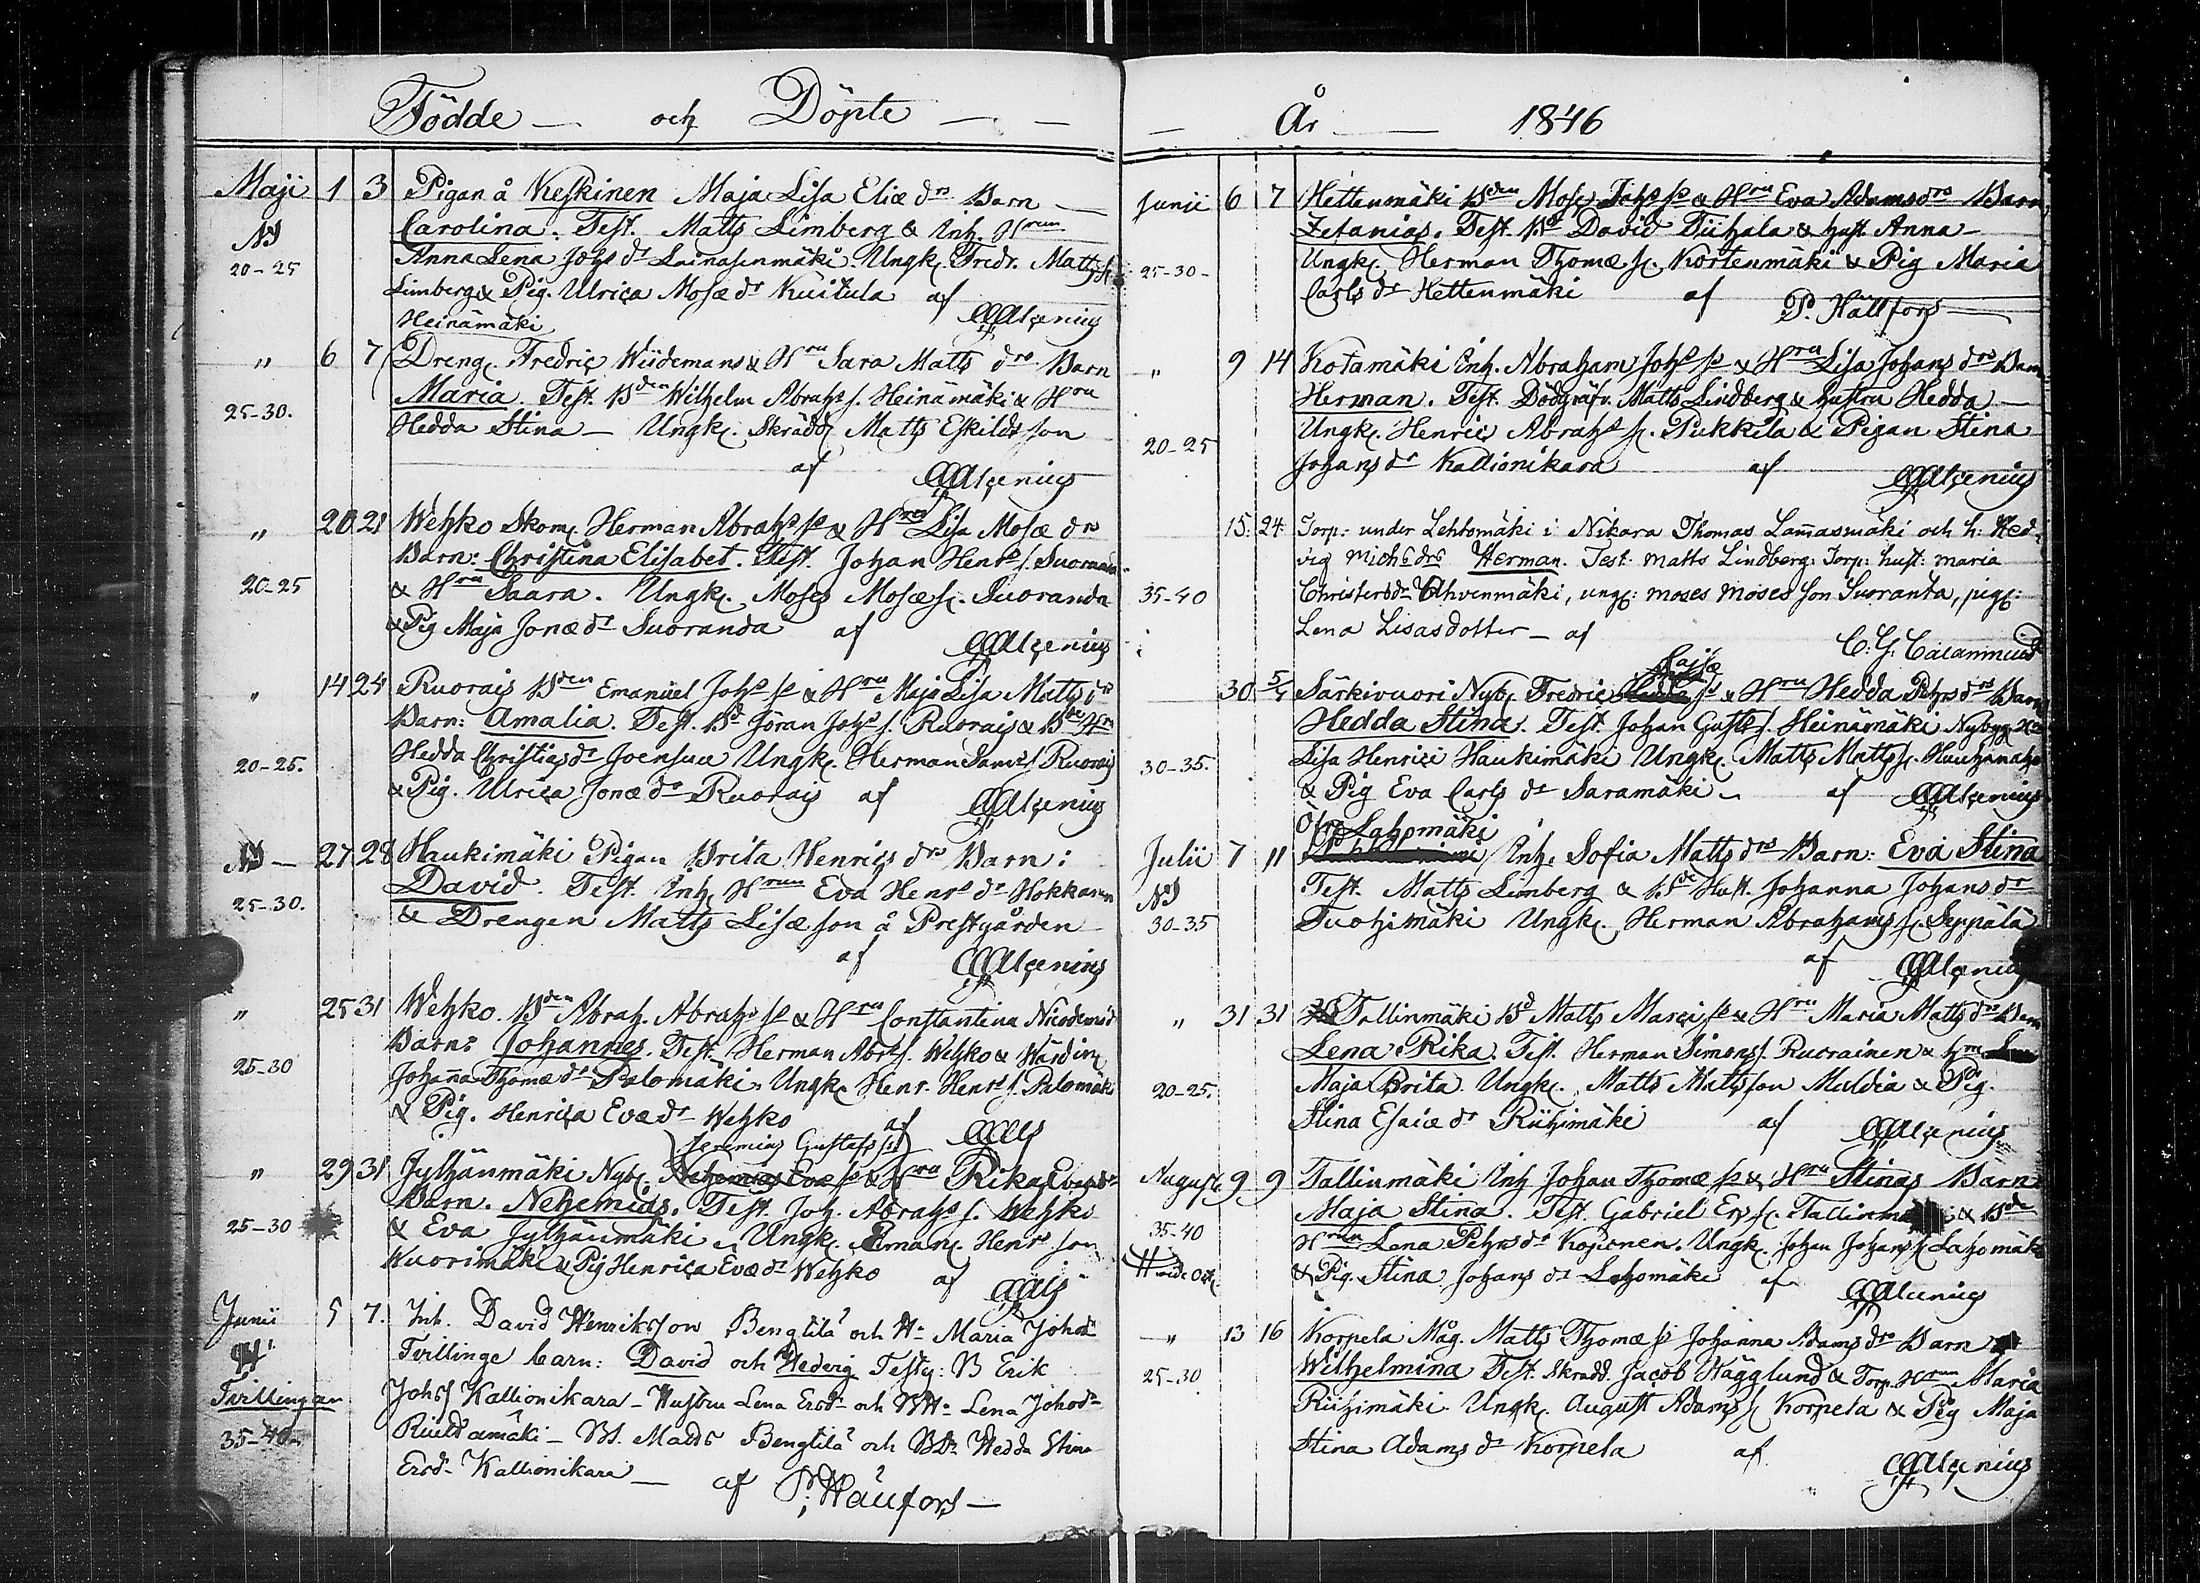 Födde — och Döpte — —
Maji 1 3 Pigan å Keskinen Maja Lisa Eliæ drs Barn —
N I Carolina. Test. Matts Limberg & Inh. Hrun
20-25 Anna Lena Johs dr Lainasenmäki. Ungk. Fredr. Matts s.
Limberg & Pig. Ulrica Mosæ dr Kuitula af
Heinämäki
" 6 7 Dreng. Fredric Wiidemans & Hru Sara Matts drs Barn
Maria. Test. Bden Wilhelm Abrahs s. Heinämäki & Hru
25-30. Hedda Stina — Ungk. Skrädd. Matts Eskildsson
af
" 20 21 Wehko Skom. Herman Abrahs so & Hrus Lisa Mosæ drs
Barn: Christina Elisabet. Test. Johan Henrs s. Suoranda
20-25 & Hru Saara. Ungk. Moses Mosæ s. Suoranda
& Pig Maja Jonæ dr Suoranda af
" 14 24 Ruorais Bden Emanuel Johs so & Hru Maja Lisa Matts drs
Barn: Amalia. Test. Bd Jöran Johs s. Ruorais & Bde Hru
20-25. Hedda Christias dr Joensuu Ungk. Herman Sam: s. Ruorais
& Pig. Ulrica Jonæ dr Ruorais af
N I — 27 28 Haukimäki Pigan Brita Henrics drs Barn:
David. Test. Inh. Hrun Eva Henrs dr Hokkanen
25-30. & Drengen Matts Lisæ son å Prestgården
af
" 25 31 Wehko. Bden Abrah. Abrahs so & Hru Constantina Nicodemi d
Barn: Johannes. Test. Herman Abrs s. Wehko & Wärdin
25-30 Johanna Thomæ dr Palomäki. Ungk. Henr. Henrs s. Palomäki
& Pig. Henrica Evæ dr Wehko af
Jeremias Gustafs so
" 29 31 Jylhänmäki Nyb. Nehemias Evæ so & Hru Rika Evæ drs
Barn. Nehemias. Test. Joh. Abrahs s. Wehko
25-30 & Eva Jylhänmäki. Ungk. Eman. Henrs son
Wuorimäki & Pig Henrica Evæ dr Wehko af
Junii 5 7. Inh. David Henriksson Bengtilä och H: Maria Johsdr
Tvillinge barn: David och Hedevig Testes: B Erik
Tvillingar Johss Kallionikara — Hustru Lena Ersdr och BH: Lena Johsdr
35-40 — Bs. Matts Bengtilä och BDr Hedda Stina
Ersdr Kallionikara — af P. Hällfors —
— År — 1846
Junii 6 7 Hettenmäki Bden Moses Johs so & Hru Eva Adams drs Barn
Zefanias. Test. Bd David Tiihala & hust Anna —
25-30 - Ungk. Herman Thomæ s. Kortenmäki & Pig Maria
Carls dr Hettenmäki af P. Hällfors —
" 9 14 Kotamäki Inh. Abraham Johs so & Hru Lisa Johans drs Barn
Herman. Test. Dödgräfv. Matts Lindberg & hustru Hedda —
20-25 Ungk. Henric Abrahs s. Pukkila & Pigan Stina
Johans dr Kallionikara af
15. 24. Torp: under Lehtomäki i Nikara Thomas Lamasmäki och h: Hed-
vig Michs drs Herman. Test: Matts Lindberg: Torp: hust: Maria
35-40 Christersdr Ahvenmäki, ungk: Moses Moses son Suoranta, pig:
Lena Lisasdotter — af
Caisæ
30 5/7 Särkivuori Nyb. Fredric so & Hru Hedda Pehrs drs Barn
Hedda Stina. Test. Johan Gusts s. Heinämäki Nybygg
30-35. Lisa Henrici Haukimäki Ungk. Matts Matts s.
& Pig Eva Carls dr Saramäki — af
Öfre Lahomäki
Julii 7 11 Inh. Sofia Matts drs Barn: Eva Stina
N I Test. Matts Limberg & Bde Hust. Johanna Johans dr
30-35 Tuohimäki Ungk. Herman Abrahams s. Seppälä
af
" 31 31 Tallinmäki Bd Matts Marci so & Hru Maria Matts drs Barn
Lena Rika. Test. Herman Simons s. Ruorainen & hru
20-25. Maja Brita. Ungk. Matts Mattsson Muldia & Pig.
Stina Esaiæ dr Riihimäki af
August 9 9 Tallinmäki Inh Johan Thomæ so & Hru Stinas Barn
Maja Stina. Test. Gabriel Ers s. Tallinmäki & Bde
35-40 Hrun Lena Pehrs dr Koponen. Ungk. Johan Johans s. Lahomäki
& Pig. Stina Johans dr Lahomäki af
— " 13 16 Korpela Måg. Matts Thomæ so Johanna Adams drs Barn
Wilhelmina Test. Skrädd. Jacob Hägglund & Torp. Hrun Maria
25-30 Riihimäki. Ungk. August Adams s. Korpela & Pig Maja
Stina Adams dr Korpela af